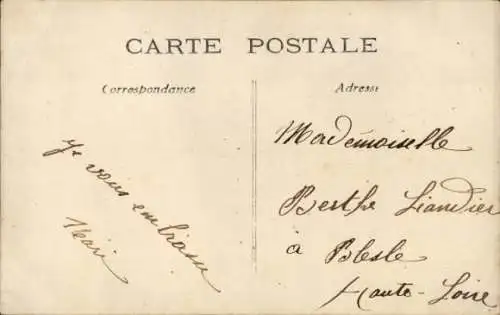 CARTE POSTALE
Correspondance
Je vous embrasse
Marie
Adresse
Mademoiselle
Berthe Liandier
à Blesle
Haute-Loire